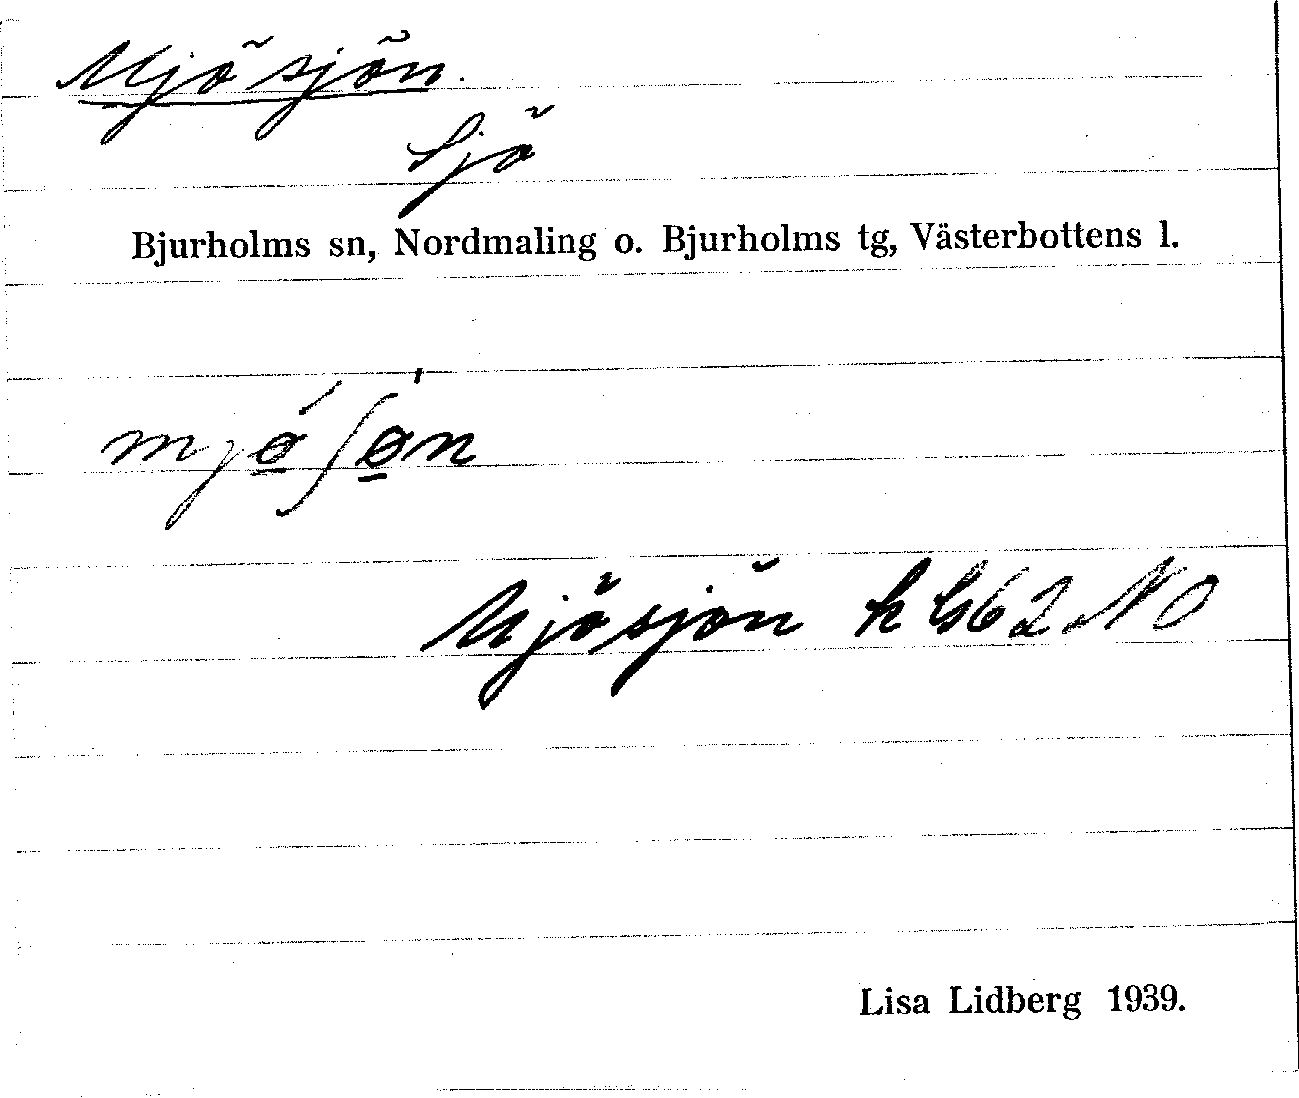 Mjösjön.
Sjö
Bjurholms sn, Nordmaling o. Bjurholms tg, Västerbottens l.
mjǿ̲ʃø̲̀n
Mjösjön k G62 NO
Lisa Lidberg 1939.